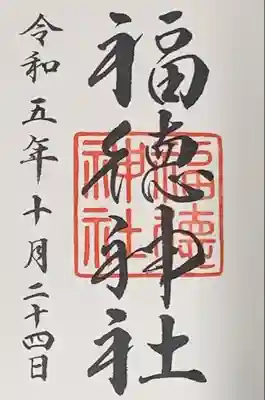 福徳神社
福徳
神社
令和五年十月二十四日